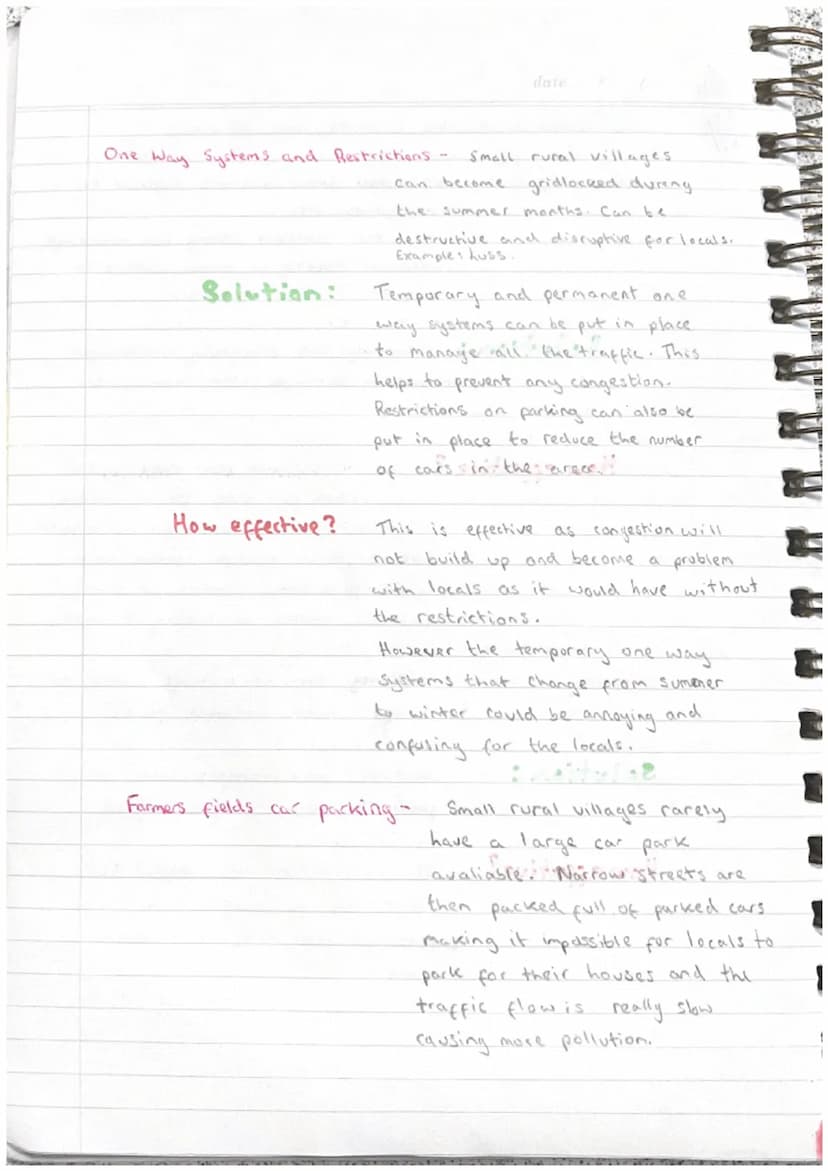 date
One Way Systems and Restrictions - Small rural villages
can become gridlocked during
the summer months. Can be
destructive and disruptive for locals.
Example: Luss.
Solution: Temporary and permanent one
way systems can be put in place
to manage all the traffic. This
helps to prevent any congestion.
Restrictions on parking can also be
put in place to reduce the number
of cars in the area.
How effective? This is effective as congestion will
not build up and become a problem
with locals as it would have without
the restrictions.
However the temporary one way
systems that change from summer
to winter could be annoying and
confusing for the locals.
Farmers fields car parking - Small rural villages rarely
have a large car park
avaliable. Narrow streets are
then packed full of parked cars
making it impossible for locals to
park for their houses and the
traffic flow is really slow
causing more pollution.